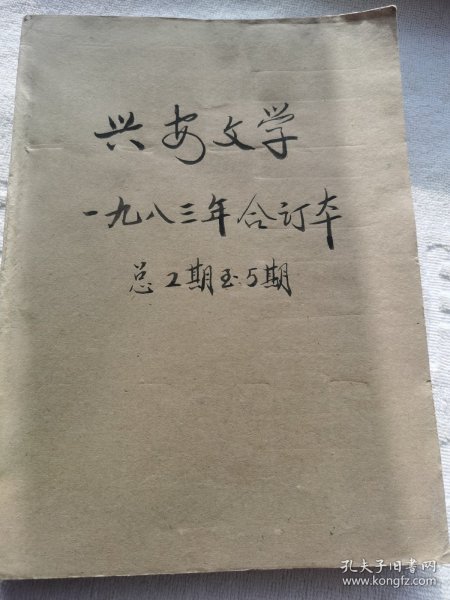 兴安文学
一九八三年合订本
总2期至5期
孔夫子旧书网
www.kongfz.com